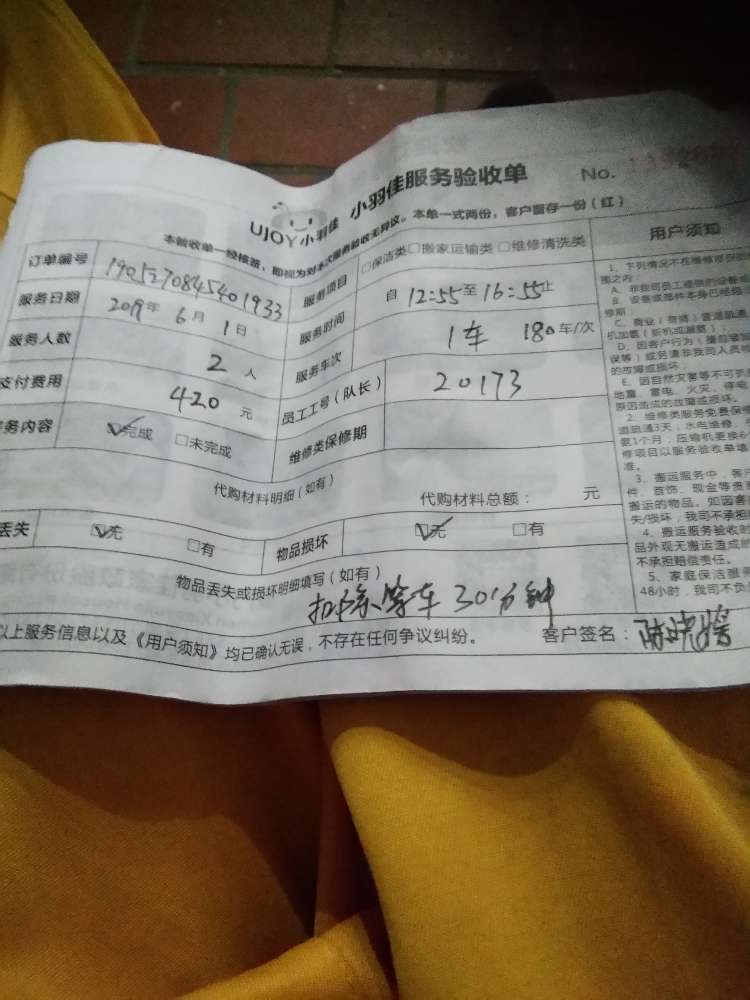 UJOY小羽佳 小羽佳服务验收单 No.
本验收单一经核签，即视为对本次服务验收无异议。本单一式两份，客户留存一份（红）
订单编号 1905270845401933 服务项目 □保洁类□搬家运输类□维修清洗类
服务日期 2019年6月1日 服务时间 自12:55至16:55止
服务人数 2人 服务车次 1车 180车/次
支付费用 420元 员工工号（队长） 20173
务内容 ☑完成 □未完成 维修类保修期
代购材料明细（如有） 代购材料总额： 元
丢失 ☑无 □有 物品损坏 ☑无 □有
物品丢失或损坏明细填写（如有）
30分钟
以上服务信息以及《用户须知》均已确认无误，不存在任何争议纠纷。 客户签名：
用户须知
1、下列情况不在维修保
围之内
A、非我司员工提供的设备
B、设备或部件本身已经超
修期；
C、商业（营销）管道疏通
机加氨（新机或漏氨）；
D、因客户行为
误等）或务清非我司人员
的故障或损坏
E、因自然灾害等不可抗
地震、雷电、火灾、停电
原因造成的故障或损坏。
2、维修类服务免费保
道疏通3天；水电维修、
氨1个月；压缩机更换
修项目以服务验收单填
准。
3、搬运服务中，客
件、首饰、现金等贵
搬运的物品。如因客
失/损坏，我司不承担
4、搬运服务验收时
品外观无搬运造成
不承担赔偿责任。
5、家庭保洁服
48小时，我司不负